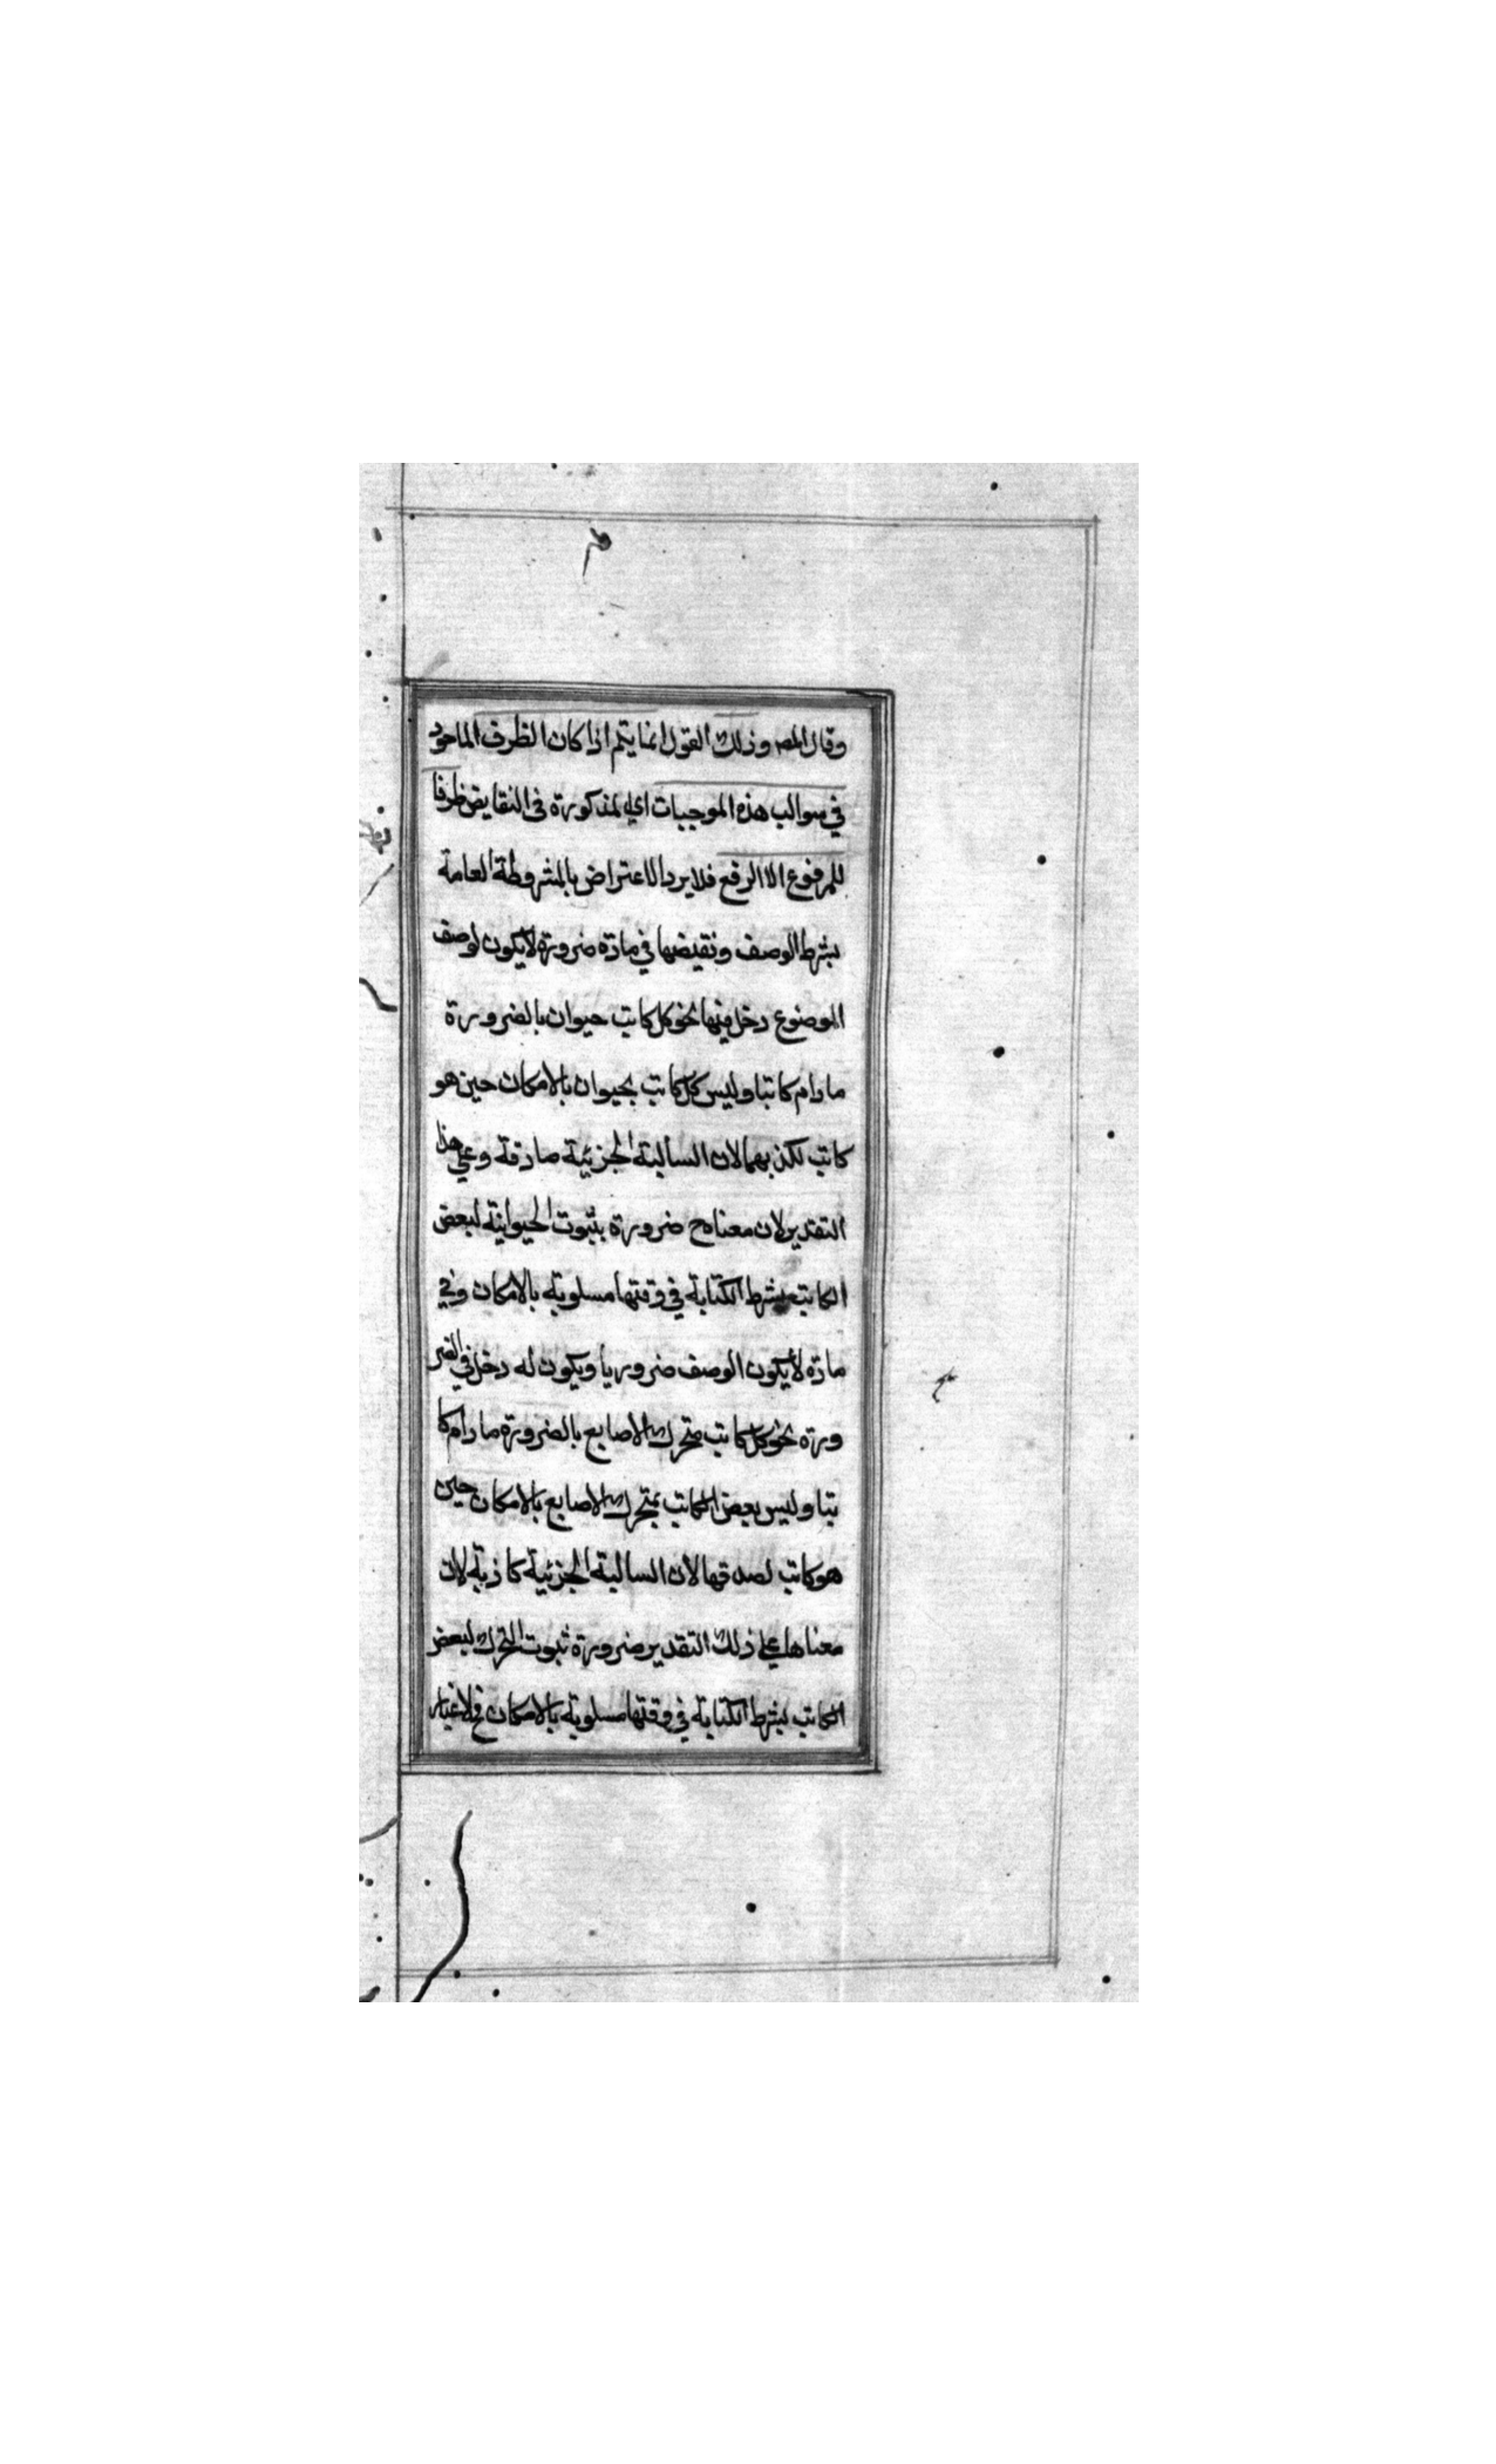 وقال المصـ وذلك القول انما يتم اذا كان الظرف الماخوذ
في سوالب هذه الموجبات اي المذكورة في النقايض ظرفا
للمرفوع لا الرفع فلا يرد الاعتراض بالمشروطة العامة
بشرط الوصف ونقيضها في مادة ضرورة لا يكون لوصف
الموضوع دخل فيها نحو كل كاتب حيوان بالضرورة
ما دام كاتبا وليس كل كاتب بحيوان بالامكان حين هو
كاتب لكذبهما لان السالبة الجزئية صادقة وعلي هذا
التقدير لان معناه ح ضرورة بثبوت الحيوانية لبعض
الكاتب بشرط الكتابة في وقتها مسلوبة بالامكان وفي
مادة لا يكون الوصف ضروريا ويكون له دخل في الضر
ورة نحو كل كاتب متحرك الاصابع بالضرورة ما دام كا
تبا وليس بعض الكاتب بمتحرك الاصابع بالامكان حين
هو كاتب لصدقها لان السالبة الجزئية كاذبة لان
معناها علي ذلك التقدير ضرورة ثبوت التحرك لبعض
الكاتب بشرط الكتابة في وقتها مسلوبة بالامكان فلا غبار